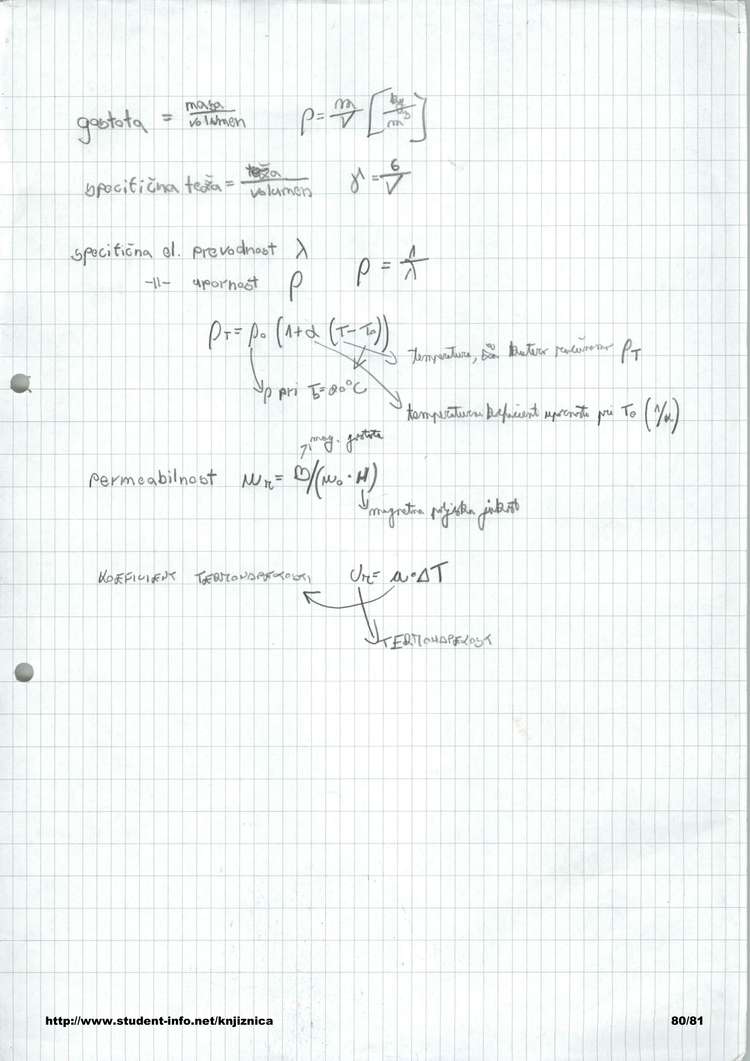 gostota = masa/volumen ρ = m/V [kg/m³]
specifična teža = teža/volumen γ = G/V
specifična el. prevodnost λ ρ = 1/λ
-11- upornost ρ
ρT = ρ0 (1+α (T-T0))
temperatura, za katero računamo ρT
ρ pri T0=20°C
temperaturni koeficient upornosti pri T0 (1/K)
mag. gostota
permeabilnost μr = B/(μ0 · H)
magnetna poljska jakost
KOEFICIENT TERMONAPETOSTI Ur = a·ΔT
TERMONAPETOST
http://www.student-info.net/knjiznica 80/81